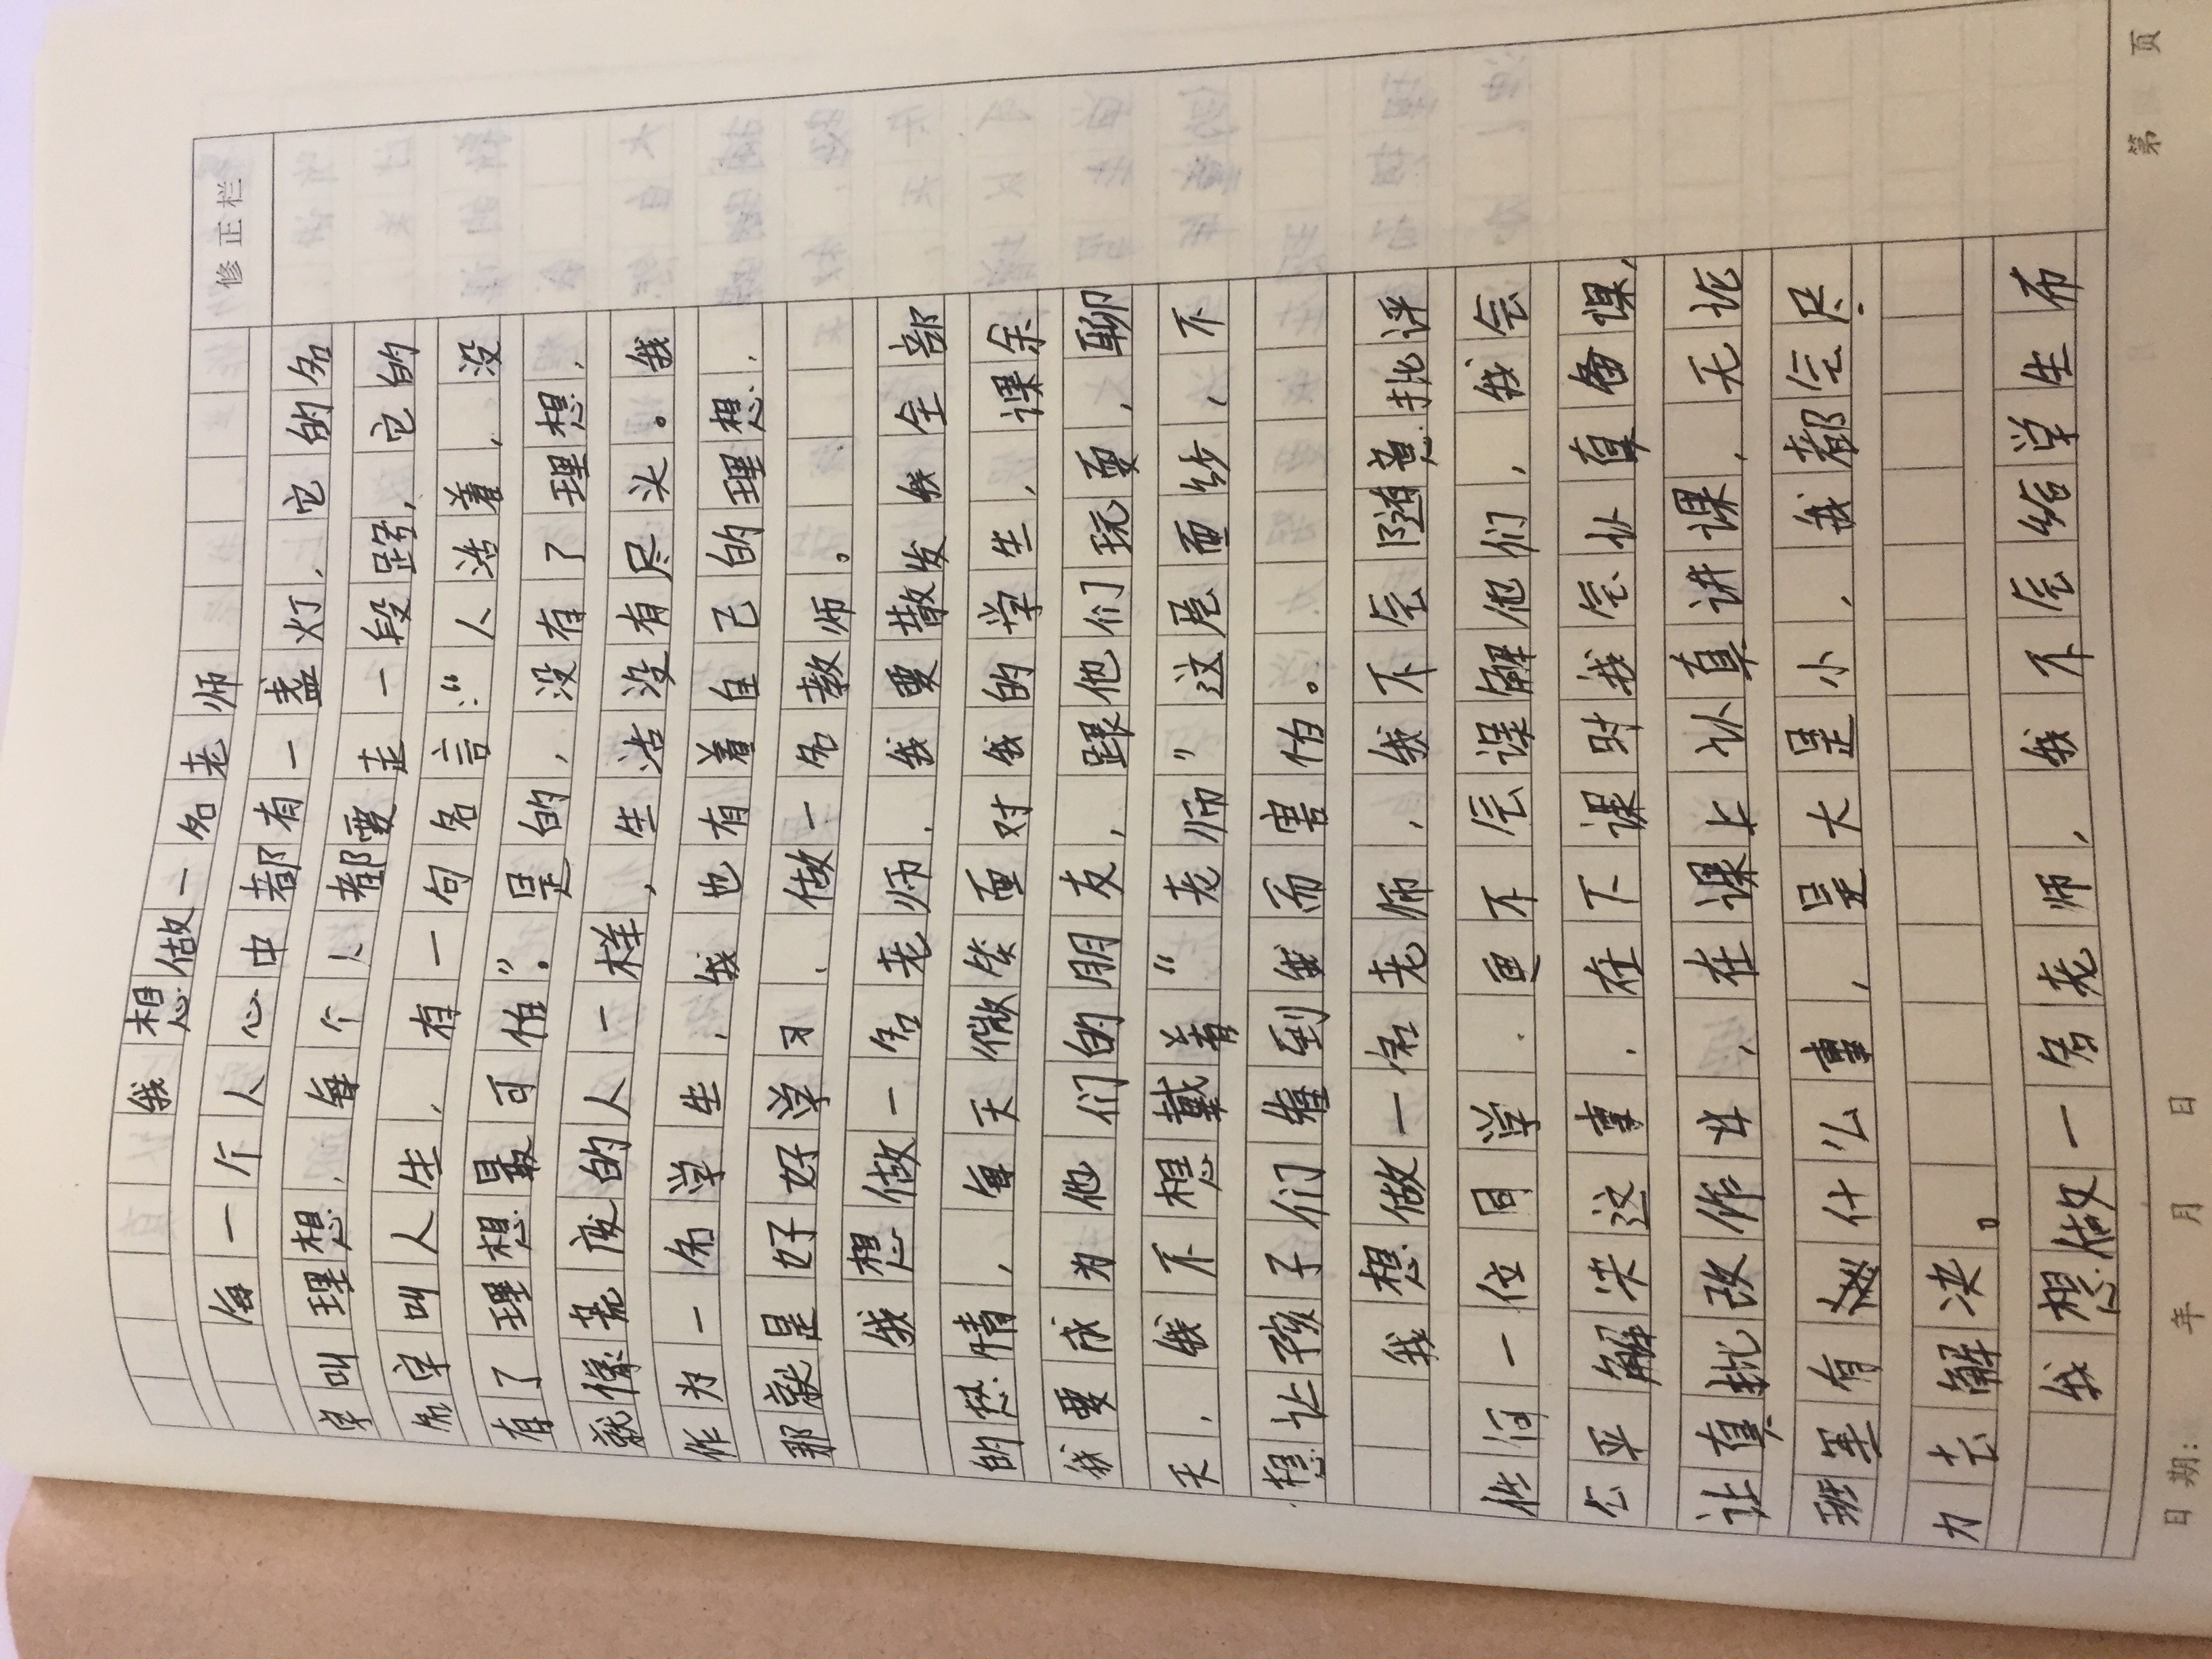 修正栏
我想做一名老师
每一个人心中都有一盏灯，它的名
字叫理想，每个人都要走一段路，它的
名字叫人生，有一句名言：“人活着，没
有了理想最可怕”。是的，没有了理想，
就像荒废的人一样，生活没有尽头。我
作为一名学生，我也有着自己的理想，
那就是好好学习，做一名教师。
我想做一名老师，我要散发我全部
的热情，每天微笑面对我的学生，课余
我要成为他们的朋友，跟他们玩耍，聊
天，我不想戴着“老师”这层面纱，不
想让孩子们值到我而害怕。
我想做一名老师，我不会随意批评
任何一位同学，更不会误解他们，我会
公平解决这事，在下课时我会认真备课，
让真批改作业，在课上认真讲课，无论
班里有什么事，是大是小，我都会尽
力去解决。
我想做一名老师，我不会给学生布
日期：年月日 第 页